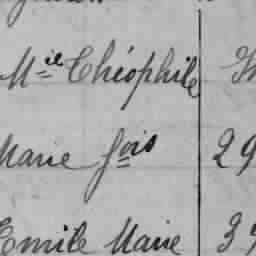 Mie Théophile
Marie fois 29
Emile Marie 37